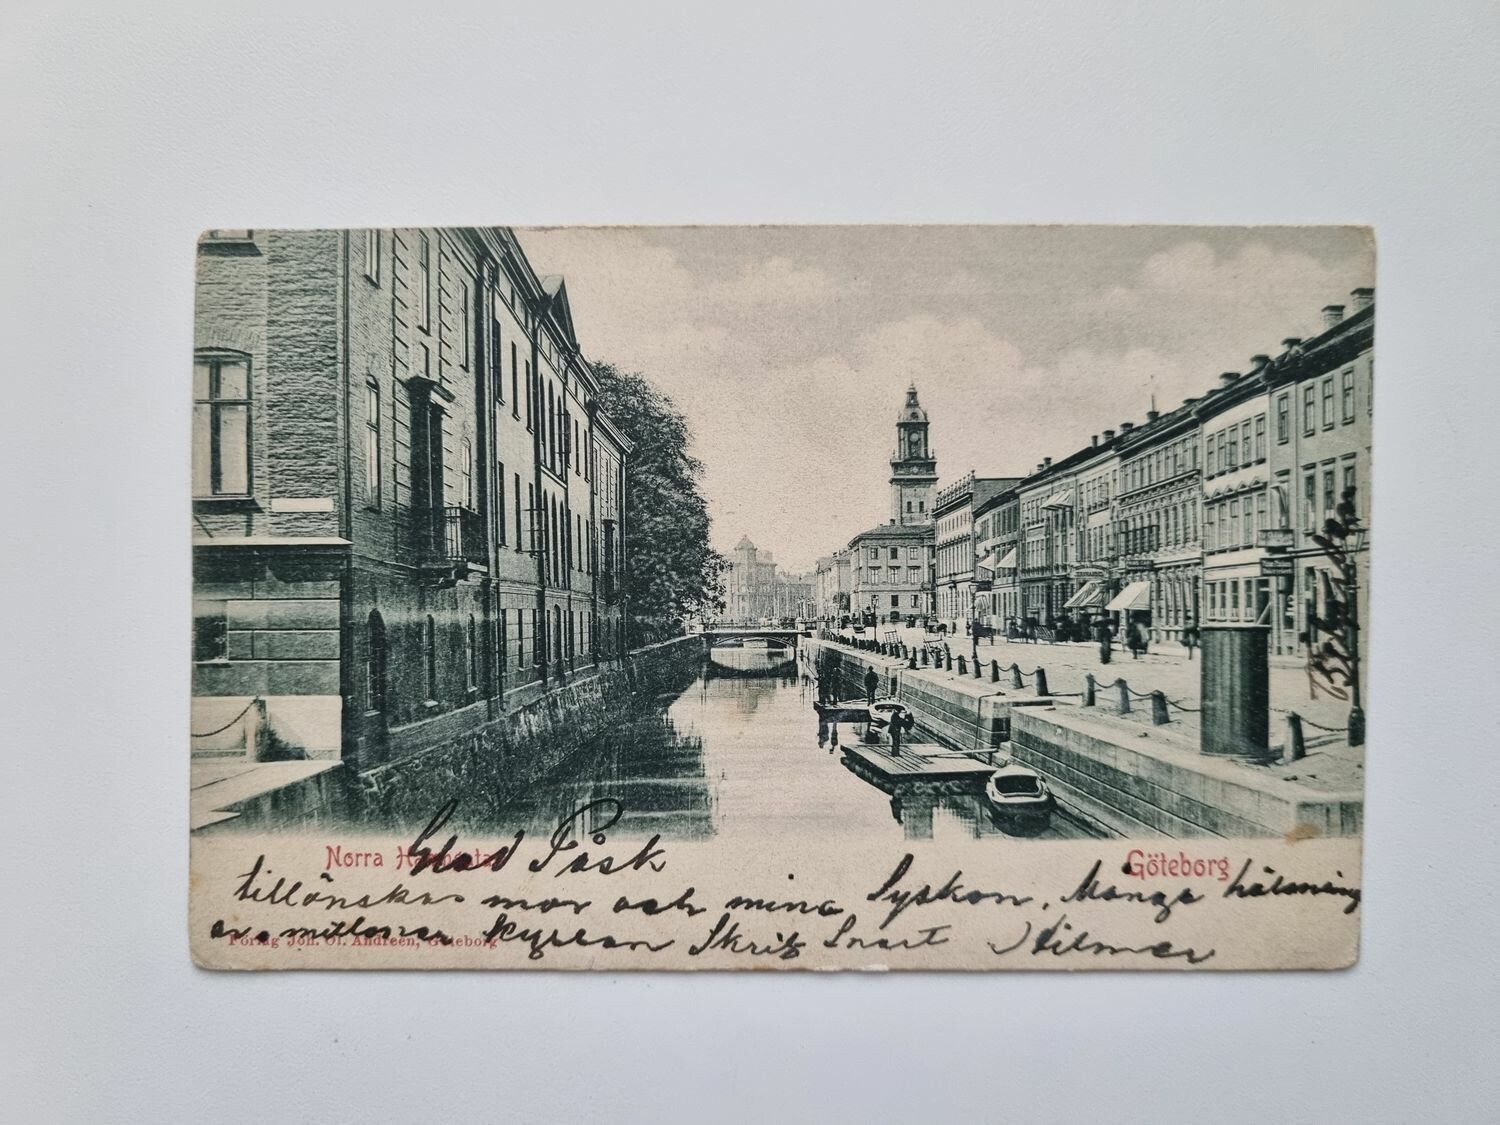 Norra Hamngatan Göteborg
Glad Påsk
tillönskas mor och mina Syskon, Många hälsning
Skrif Snart Hilmer
Förlag Joh. Ol. Andreen, Göteborg